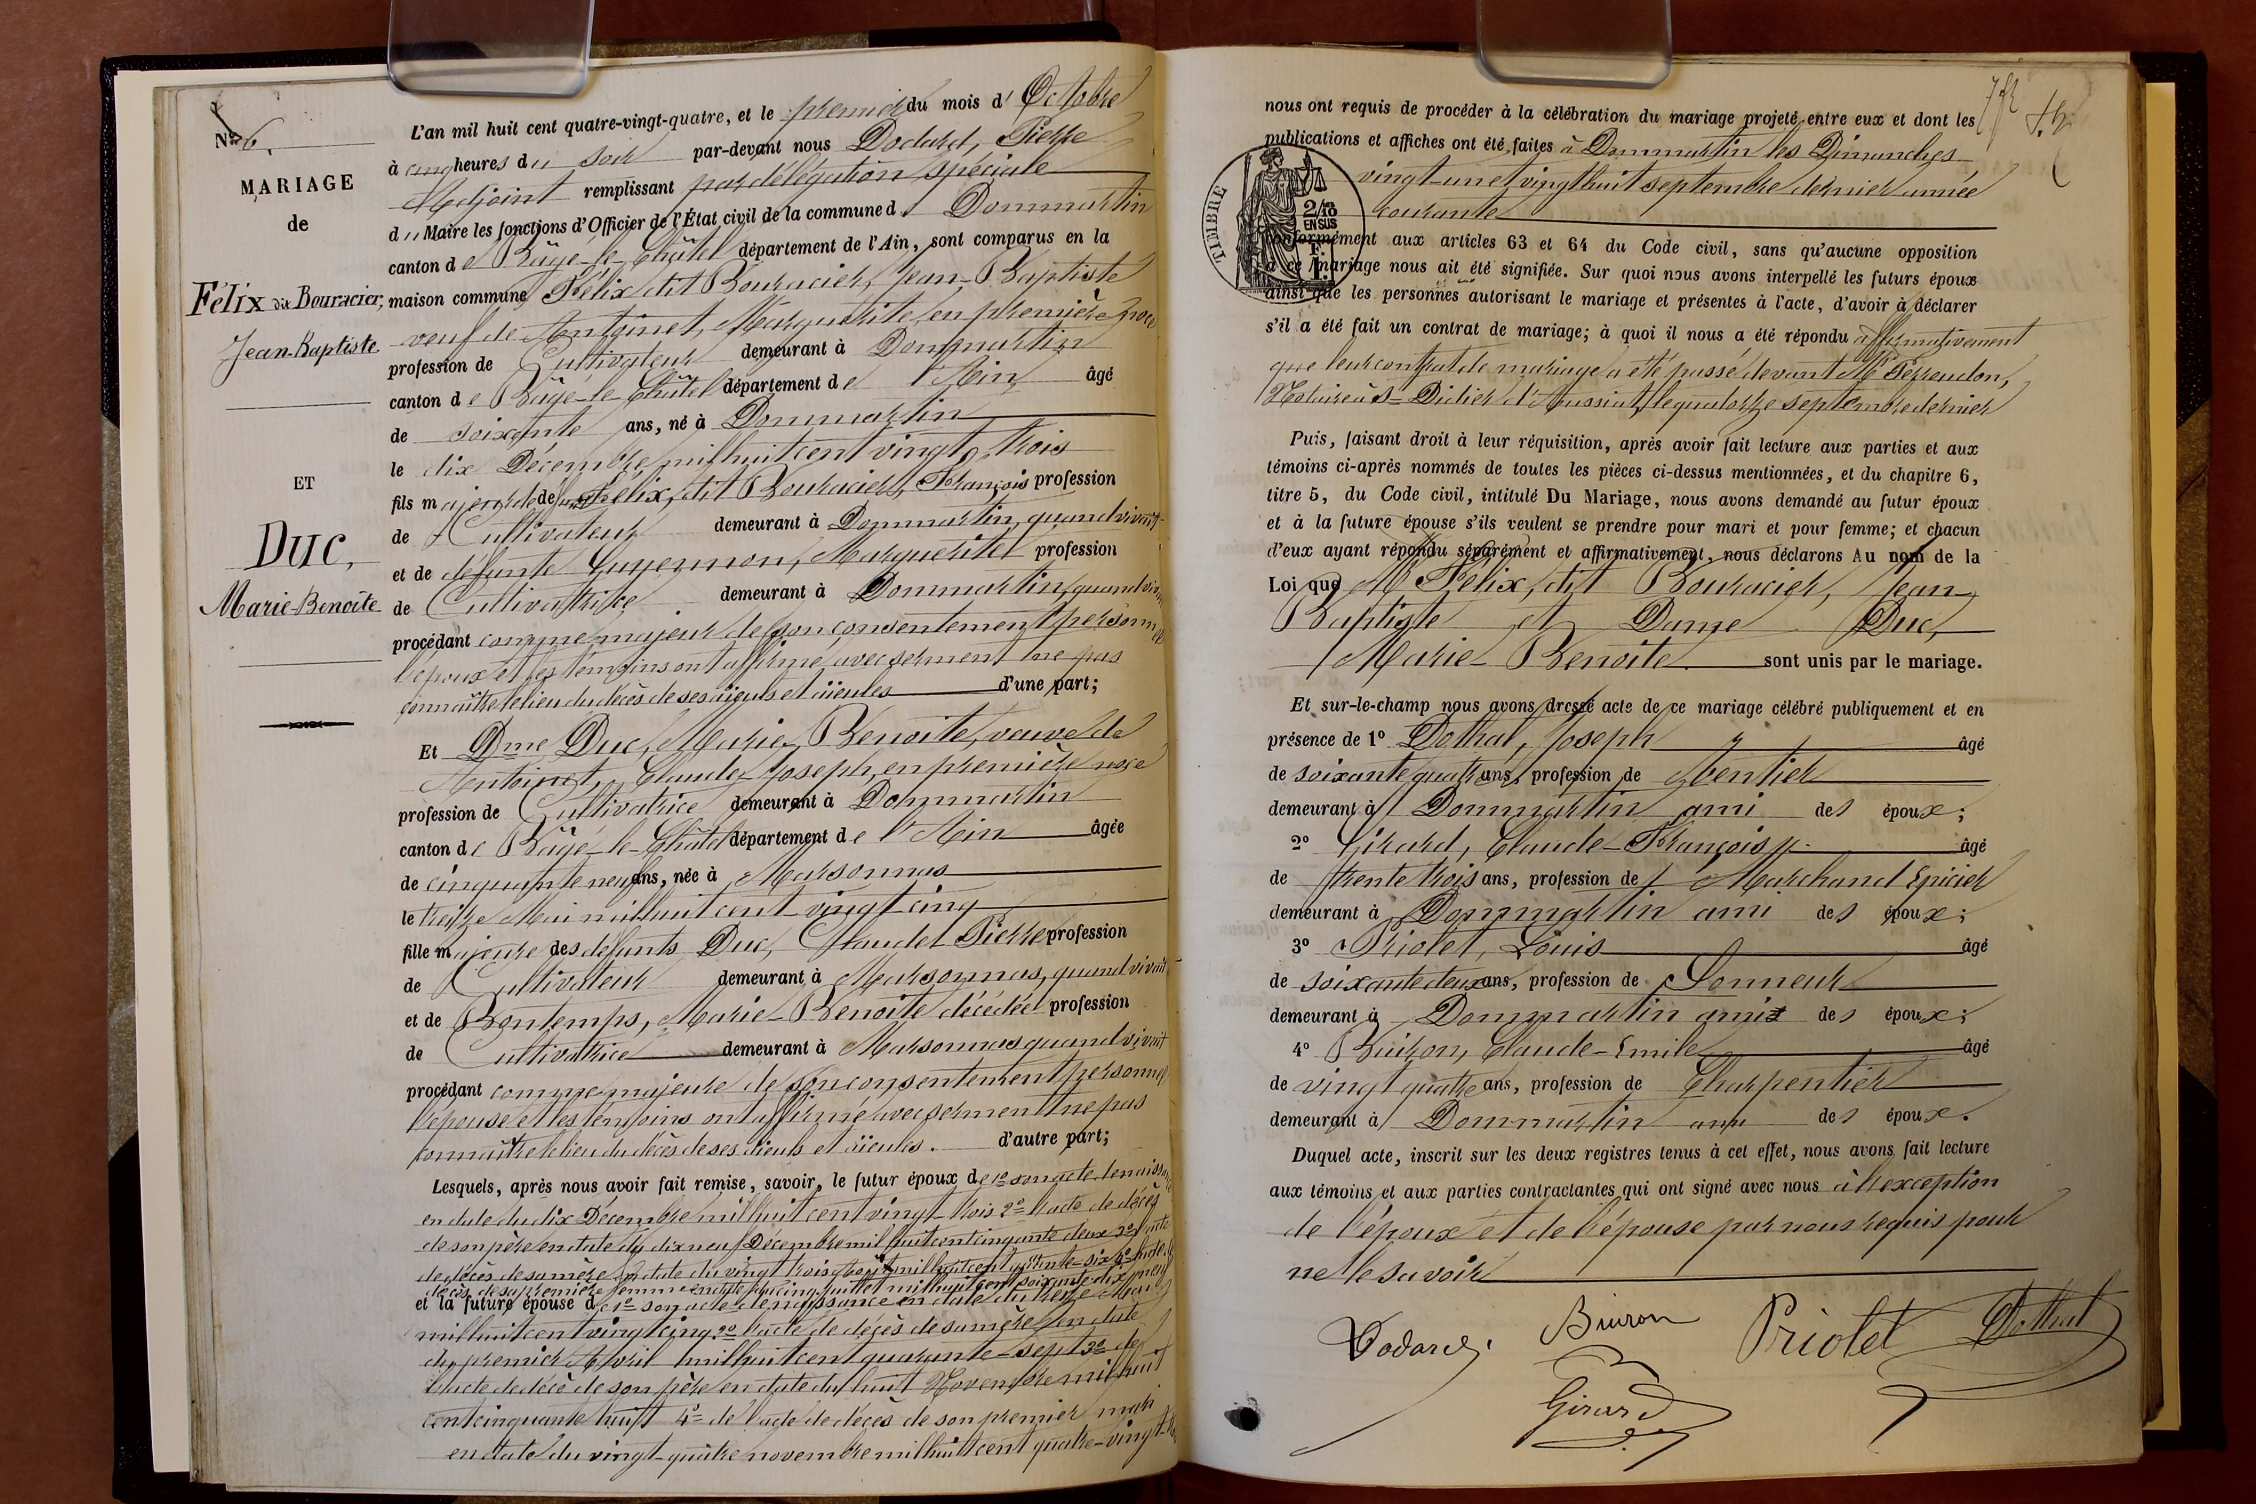 No 6.
MARIAGE
de
Félix dit Bouracier,
Jean-Baptiste
ET
Duc,
Marie-Benoîte
L'an mil huit cent quatre-vingt-quatre, et le premier du mois d'Octobre
à cinq heures du soir par-devant nous Dodard, Pierre
Adjoint remplissant par délégation spéciale
du Maire les fonctions d'Officier de l'État civil de la commune d Dommartin
canton de Bâgé-le-Châtel département de l'Ain, sont comparus en la
maison commune Félix dit Bouracier, Jean-Baptiste
veuf de Antoinet, Marguerite, en première noce
profession de Cultivateur demeurant à Dommartin
canton de Bâgé-le-Châtel département de l'Ain âgé
de soixante ans, né à Dommartin
le dix Décembre mil huit cent vingt trois
fils majeur de défunt Félix, dit Bouracier, François profession
de Cultivateur demeurant à Dommartin, quand vivait
et de défunte Guyennon, Marguerite profession
de Cultivatrice demeurant à Dommartin, quand viv
procédant comme majeur de son consentement personnel
l'époux et les témoins ont affirmé avec serment ne pas
connaître le lieu du décès de ses aïeuls et aïeules d'une part;
Et Dme Duc, Marie, Benoîte, veuve de
Antoinet, Claude, Joseph, en première noce
profession de Cultivatrice demeurant à Dommartin
canton de Bâgé-le-Châtel département de l'Ain âgée
de cinquante neuf ans, née à Marsonnas
le treize Mai mil huit cent vingt cinq
fille majeure des défunts Duc, Claude Pierre profession
de Cultivateur demeurant à Marsonnas, quand vivait
et de Bontemps, Marie-Benoîte décédée profession
de Cultivatrice demeurant à Marsonnas quand vivait
procédant comme majeure de son consentement personnel
l'épouse et les témoins ont affirmé avec serment ne pas
connaître le lieu du décès de ses aïeuls et aïeules. d'autre part;
Lesquels, après nous avoir fait remise, savoir, le futur époux de 1º son acte de naissance
en date du dix Décembre mil huit cent vingt-trois 2º l'acte de décès
de son père en date du dix neuf Décembre mil huit cent cinquante deux 3º l'acte
de décès de sa mère en date du vingt trois août mil huit cent trente-six 4º l'acte de
décès de sa première femme en date du cinq juillet mil huit cent soixante-dix neuf
et la future épouse de 1º son acte de naissance en date du treize Mai
mil huit cent vingt cinq 2º l'acte de décès de sa mère en date
du premier Avril mil huit cent quarante-sept 3º de
l'acte de décè de son père en date du huit Novembre mil huit
cent cinquante huit 4º de l'acte de décès de son premier mari
en date du vingt-quatre novembre mil huit cent quatre-vingt
nous ont requis de procéder à la célébration du mariage projeté entre eux et dont les
publications et affiches ont été faites à Dommartin les Dimanches
vingt-un et vingt huit septembre dernier année
courante
conformément aux articles 63 et 64 du Code civil, sans qu'aucune opposition
à ce mariage nous ait été signifiée. Sur quoi nous avons interpellé les futurs époux
ainsi que les personnes autorisant le mariage et présentes à l'acte, d'avoir à déclarer
s'il a été fait un contrat de mariage; à quoi il nous a été répondu affirmativement
que leur contrat de mariage a été passé devant Me Perraudon,
Notaire à St Didier d'Aussiat, le quatorze septembre dernier
TIMBRE
2/10
EN SUS
F.
1.
Puis, faisant droit à leur réquisition, après avoir fait lecture aux parties et aux
témoins ci-après nommés de toutes les pièces ci-dessus mentionnées, et du chapitre 6,
titre 5, du Code civil, intitulé Du Mariage, nous avons demandé au futur époux
et à la future épouse s'ils veulent se prendre pour mari et pour femme; et chacun
d'eux ayant répondu séparément et affirmativement, nous déclarons Au nom de la
Loi que Mr Félix, dit Bouracier, Jean
Baptiste et Dame Duc,
Marie-Benoîte sont unis par le mariage.
Et sur-le-champ nous avons dressé acte de ce mariage célébré publiquement et en
présence de 1º Dothal, Joseph âgé
de soixante quatre ans, profession de Rentier
demeurant à Dommartin ami des époux;
2º Girard, Claude-François âgé
de trente trois ans, profession de Marchand Epicier
demeurant à Dommartin ami des époux;
3º Priolet, Louis âgé
de soixante deux ans, profession de Sonneur
demeurant à Dommartin ami des époux;
4º Buiron, Claude-Emile âgé
de vingt quatre ans, profession de Charpentier
demeurant à Dommartin ami des époux.
Duquel acte, inscrit sur les deux registres tenus à cet effet, nous avons fait lecture
aux témoins et aux parties contractantes qui ont signé avec nous à l'exception
de l'époux et de l'épouse par nous requis pour
ne le savoir
Dodard. Buiron Priolet Dothal
Girard